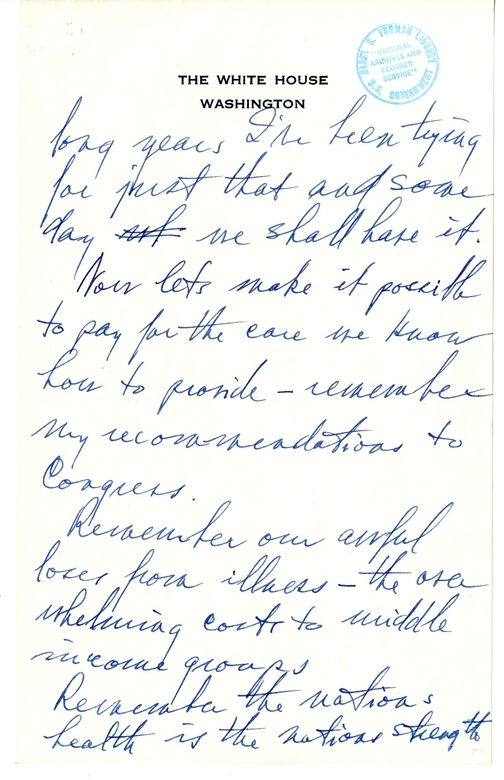 HARRY S. TRUMAN LIBRARY
"NATIONAL
ARCHIVES AND
RECORDS
SERVICE"
U.S. GOVERNMENT
THE WHITE HOUSE
WASHINGTON
long years I've been trying
for just that and some
day we shall have it.
Now lets make it possible
to pay for the care we know
how to provide – remember
my recommendations to
Congress.
Remember our awful
loses from illness – the over
whelming costs to middle
income groups
Remember the nations
health is the nations strength